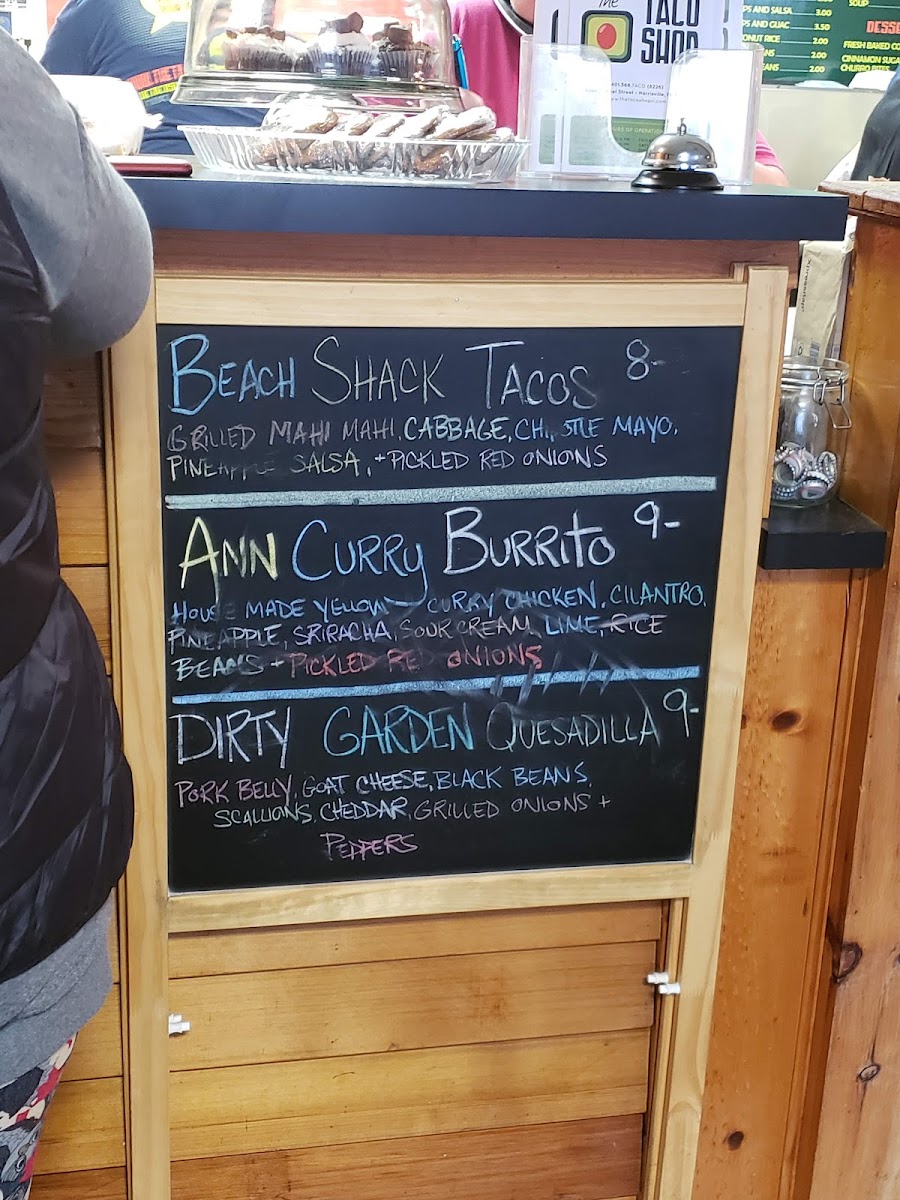 The
TACO
SHOP
PS AND SALSA 3.00
PS AND GUAC 3.50
ONUT RICE 2.00
ANS 2.00
2.00
SOUP
DESS
FRESH BAKED CO
CINNAMON SUGA
CHURRO BITES
BEACH SHACK TACOS 8-
GRILLED MAHI MAHI, CABBAGE, CHIPOTLE MAYO,
PINEAPPLE SALSA, + PICKLED RED ONIONS
ANN CURRY BURRITO 9-
HOUSE MADE YELLOW CURRY CHICKEN, CILANTRO,
PINEAPPLE, SRIRACHA, SOUR CREAM, LIME, RICE
BEANS + PICKLED RED ONIONS
DIRTY GARDEN QUESADILLA 9-
PORK BELLY, GOAT CHEESE, BLACK BEANS,
SCALLIONS, CHEDDAR, GRILLED ONIONS +
PEPPERS